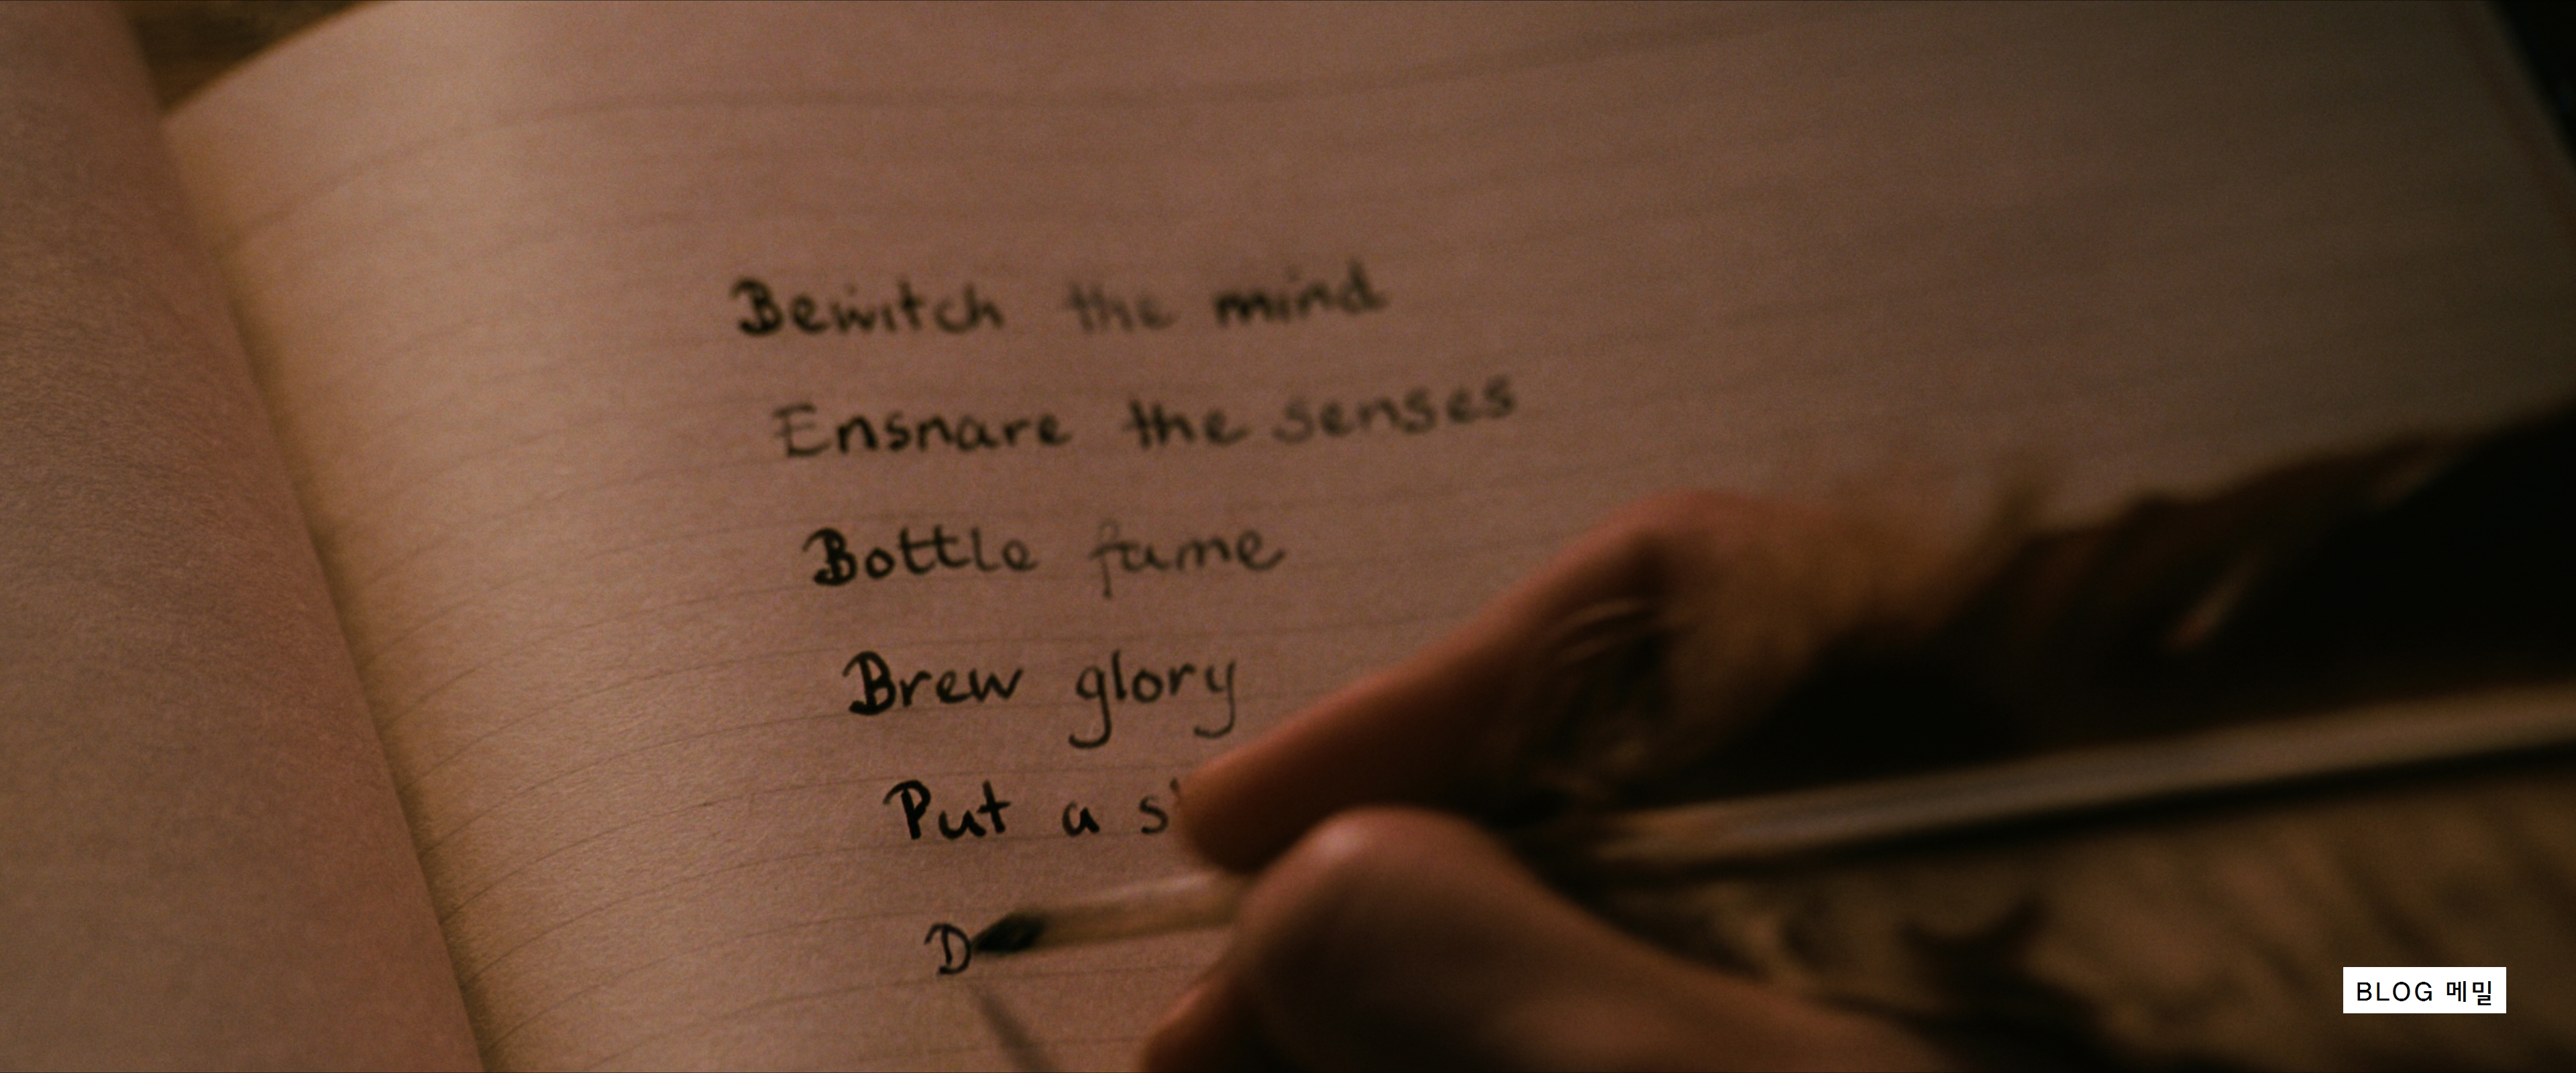 Bewitch the mind
Ensnare the senses
Bottle fame
Brew glory
Put a
D
BLOG 메밀